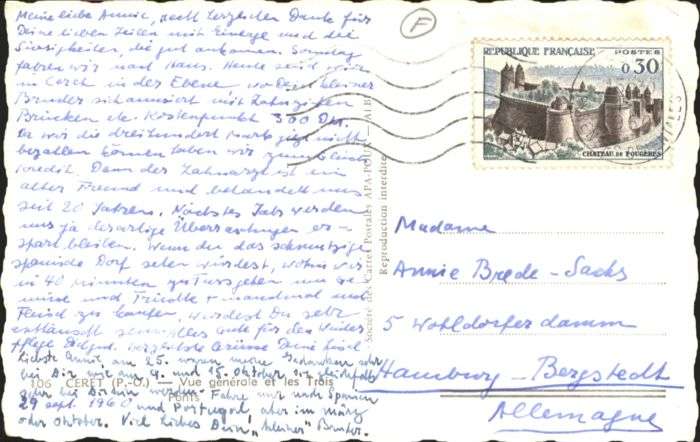 Meine liebe Annie, recht herzlichen Dank für
Deine lieben Zeilen mit Einlage und die
Süssigkeiten, die gut ankamen. Sonntag
fahren wir nach Haus. Heute sind wir
in Ceret in der Ebene kleiner
Bruder mit Zahnziehen
Brücken etc. Kostenpunkt 300 DM.
Da wir die dreihundert Mark jetzt nicht
bezahlen können haben wir
Kredit. Denn der Zahnarzt ist ein
alter Freund und behandelt uns
seit 20 Jahren. Nächstes Jahr werden
uns ja derartige Überraschungen er-
spart bleiben. Wenn du das schmutzige
spanische Dorf sehen würdest, wohin wir
in 40 Minuten zu Fuss gehen um
und + manchmal mal
Fleisch zu kaufen, würdest Du sehr
enttäuscht alles Gute für den
herzlichste Grüsse Deine
Liebste Annie, am 25. meine Gedanken sehr
bei Dir wie am 4. und 15. Oktober, wo gleichfalls
oder bei Fahre mir nach Spanien
und Portugal, aber im März
oder Oktober. Viel Liebes Dein "kleiner" Bruder.
29 sept. 1960
106 CERET (P.-O.) — Vue générale et les Trois
Ponts
Société des Cartes Postales APA-POUX — ALBI
Reproduction interdite
F
RÉPUBLIQUE FRANÇAISE
POSTES
0,30
CHÂTEAU DE FOUGÈRES
Madame
Annie Brede-Sachs
5 Wohldorfer damm
Hamburg-Bergstedt
Allemagne